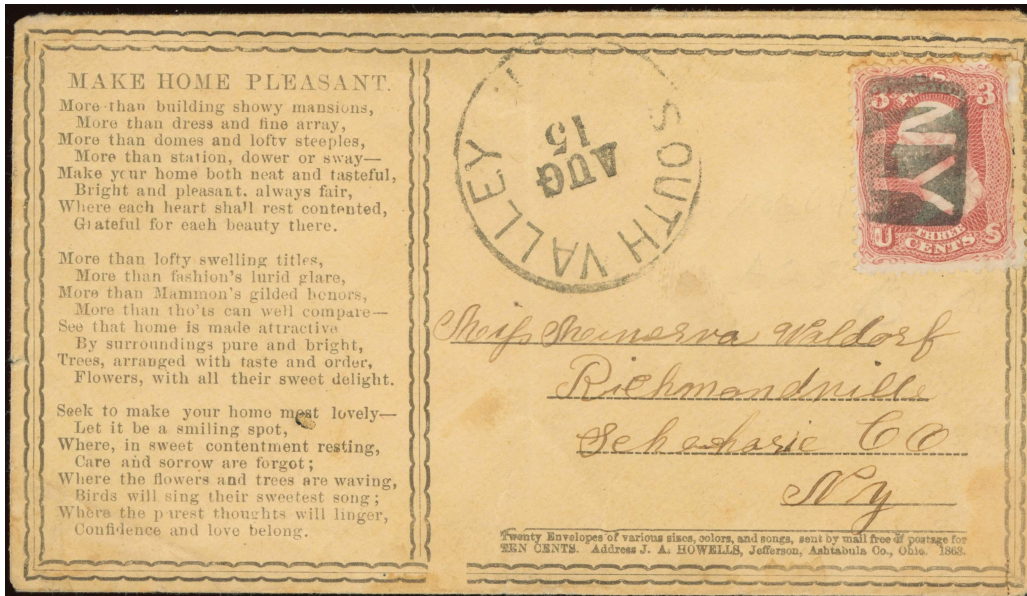 MAKE HOME PLEASANT.
More than building showy mansions,
More than dress and fine array,
More than domes and lofty steeples,
More than station, dower or sway—
Make your home both neat and tasteful,
Bright and pleasant, always fair,
Where each heart shall rest contented,
Grateful for each beauty there.
More than lofty swelling titles,
More than fashion's lurid glare,
More than Mammon's gilded honors,
More than tho'ts can well compare—
See that home is made attractive
By surroundings pure and bright,
Trees, arranged with taste and order,
Flowers, with all their sweet delight.
Seek to make your home most lovely—
Let it be a smiling spot,
Where, in sweet contentment resting,
Care and sorrow are forgot;
Where the flowers and trees are waving,
Birds will sing their sweetest song;
Where the purest thoughts will linger,
Confidence and love belong.
SOUTH VALLEY
AUG
15
3 3
NY
U THREE CENTS S
Miss Meinerva Waldorf
Richmandville
Schoharie CO
NY
Twenty Envelopes of various sizes, colors, and songs, sent by mail free of postage for
TEN CENTS. Address J. A. HOWELLS, Jefferson, Ashtabula Co., Ohio. 1863.